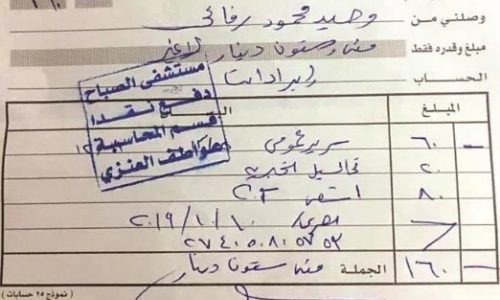 ١٦٠
وصلني من وحيد محمود رفاعي
مبلغا وقدره فقط مئة وستون دينار لاغير
الحساب إيرادات
مستشفى الصباح
دفع نقدا
قسم المحاسبة
عواطف العنزي
المبلغ
٦٠ سرير عمومي
٢٠ تحاليل
٨٠ أشعة
٢٠١٩/١/١٠
٢٧٤٠٥٠٨٠٥٧٥٣
١٦٠ الجملة مئة ستون دينار
( نموذج ٢٥ حسابات )